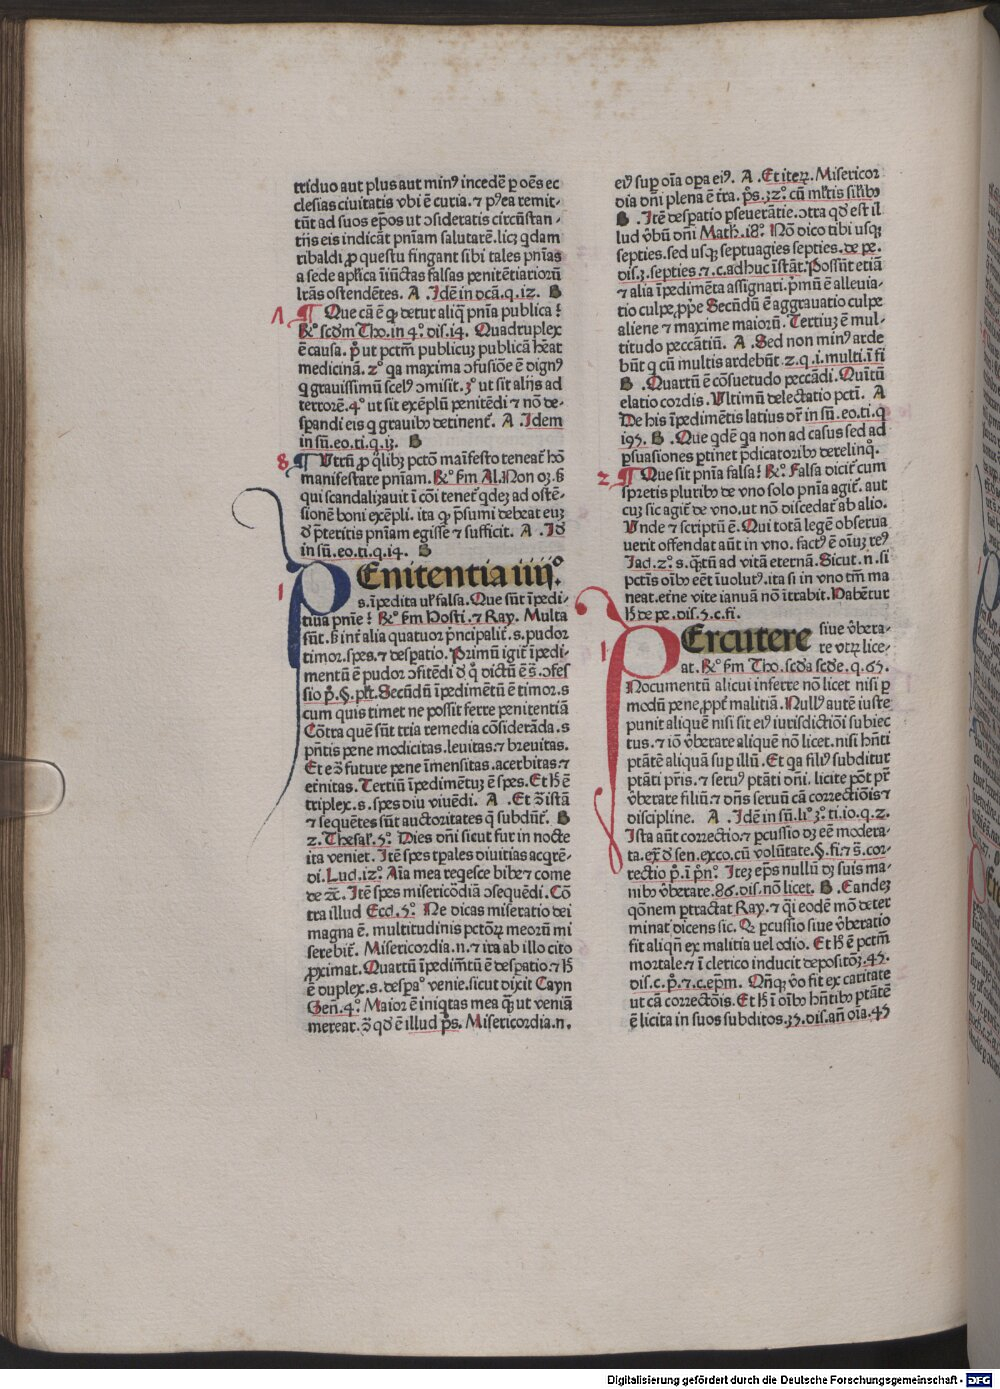 triduo aut plus aut minꝰ incedẽ ꝑ oẽs ec
clesias ciuitatis vbi ẽ curia. ⁊ pꝰea remit-
tũt ad suos ep̃os ut ↄsideratis circũstan-
tijs eis indicãt pñiam salutarẽ. licꝫ qdam
ribaldi ꝓ questu fingant sibi tales pñias
a sede apl̃ica ĩiũctas falsas penitẽtiarioꝝ
lr̃as ostendẽtes. A .Idẽ in dcã.q.12. B
7 ¶ Que cã ẽ ꝙ detur aliq̃ pñia publica?
R̃º scdm Tho.in 4º. dis.14. Quadruplex
ẽ causa. p̃ ut pctm̃ publicuꝫ publicã hẽat
medicinã. 2º qa maxima ↄfusiõe ẽ dignꝰ
q grauissimũ scelꝰ ↄmisit. 3º ut sit alijs ad
terrorẽ. 4º ut sit exẽplũ penitẽdi ⁊ nõ de-
sꝑandi eis q grauibꝰ detinent̃. A .Idem
in sũ.eo.ti.q.13. B
8 ¶ Vtrũ ꝓ q̃libꝫ pctõ manĩfesto teneat̃ hõ
manifestare pñiam. R̃º ẜm Al. Non oꝫ. ẜ
qui scandalizauit ĩ cõi tenet̃ qdeꝫ ad ostẽ-
sionẽ boni exẽpli. ita ꝙ p̃sumi debeat euꝫ
ð p̃teritis pñiam egisse ⁊ sufficit. A .Id̃
in sũ.eo.ti.q.14. B
1 PEnitentia iiijº.
s. ĩpedita ul̃ falsa. Que sũt ĩpedi-
tiua pnĩe? R̃º ẜm Hosti. ⁊ Ray. Multa
sũt. ẜ int̃ alia quatuor p̃ncipalit̃. s. pudor
timor. spes. ⁊ desꝑatio. Primũ igit̃ ĩpedi-
mentũ ẽ pudor ↄfitẽdi ð q̃ dictũ ẽ s̃. ↄfes
sio p̃.§. pt̃. Secũdũ ĩpedimẽtũ ẽ timor. s
cum quis timet ne possit ferre penitentiã
Cõtra quẽ sũt tria remedia cõsiderãda. s
pñtis pene modicitas. leuitas. ⁊ breuitas.
Et eꝯ̃ future pene ĩmensitas. acerbitas ⁊
et̃nitas. Tertiũ ĩpedimẽtuꝫ ẽ spes. Et h̃ ẽ
triplex. s. spes diu viuẽdi. A .Et ꝯ̃ istã
⁊ sequẽtes sũt auctoritates q̃ subdũt̃. B
2. Thesal̃. 5º. Dies oñi sicut fur in nocte
ita veniet. Itẽ spes tp̃ales diuitias acqrẽ-
di. Lud.12º. Aĩa mea reqesce bibe ⁊ come
de ⁊c̃. Itẽ spes misericõdiã ↄsequẽdi. Cõ
tra illud Eccl.5º. Ne dicas miseratio dei
magna ẽ. multitudinis pctõꝝ meoꝝ mi
serebit̃. Misericordia.n. ⁊ ita ab illo cito
ꝓximat. Quartũ ĩpedim̃tũ ẽ desꝑatio. ⁊ h̃
ẽ duplex. s. desꝑaº venie. sicut dixit Cayn
Geñ.4º. Maior ẽ iniqtas mea q̃ꝫ ut veniã
merear. ꝯ̃ qð ẽ illud p̃s. Misericordia.n.
eiꝰ suꝑ oĩa oꝑa eiꝰ. A .Et iteꝝ. Misericor
dia oñi plena ẽ tr̃a. p̃s.32º. cũ ml̃tis sil̃ibꝰ
B .Itẽ desꝑatio ꝑseuerãtie. ↄtra qð est il
lud v̾bũ dñi Math.18º. Nõ dico tibi usqꝫ
septies. sed usqꝫ septuagies septies. de pe.
dis.3. septies. ⁊.c. adhuc ĩstãt. Possũt etiã
⁊ alia ĩpedimẽta assignari. p̃mũ ẽ alleuia-
tio culpe, ꝓp̃e Secũdũ ẽ aggrauatio culpe
aliene ⁊ maxime maiorũ. Tertiuꝫ ẽ mul-
titudo peccãtiũ. A .Sed non minꝰ arde
bũt q cũ multis ardebũt. 2.q.1. multi. ĩ fi
B .Quartũ ẽ cõsuetudo peccãdi. Quĩtũ
elatio cordis. Vltimũ delectatio pcti. A
De his ĩpedimẽtis latius or̃ in sũ.eo.ti.q
195. B .Que qdẽ qa non ad casus sed ad
ꝑsuasiones ꝑtinet p̃dicatoribꝰ derelinq̃.
2 ¶ Que sit pñia falsa? R̃º. Falsa dicit̃ cum
spretis pluribꝰ de vno solo pnĩa agit̃. aut
cuꝫ sic agit̃ de vno. ut nõ discedat̃ ab alio.
Vnde ⁊ scriptũ ẽ. Qui totã legẽ obserua
uerit offendat aũt in vno. factꝰ ẽ oĩuꝫ reꝰ
Jacl.2º. s. q̃tũ ad vitã eternã. Sicut.n. si
pctĩs oĩbꝰ eẽt ĩuolutꝰ. ita si in vno tm̃ ma
neat. et̃ne vite ianuã nõ ĩtrabit. Habẽtur
h̃ de pe. dis.5.c. fi.
1 PErcutere siue v̾bera-
re vtꝝ lice-
at. R̃º ẜm Tho. scða scðe.q.65.
Nocumentũ alicui inferre nõ licet nisi ꝑ
modũ pene, ꝓpt̃ malitiã. Nullꝰ autẽ iuste
punit aliquẽ nisi sit eiꝰ iurisdictiõi subiec
tus. ⁊ iõ v̾berare aliquẽ nõ licet. nisi hñti
ptãtẽ aliquã suꝑ illũ. Et qa filiꝰ subditur
ptãti pr̃is. ⁊ seruꝰ ptãti oñi. licite põt pr̃
v̾berare filiũ. ⁊ dñs seruũ cã correctiõis ⁊
discipline. A .Idẽ in sũ. li.º 3º. ti.10.q.2.
Ista aũt correctio. ⁊ ꝑcussio dꝫ eẽ modera-
ta. ex̃ ð sen.exco. cũ volũtate. §. fi. ⁊ s̃. cor-
rectio p̃. ĩ p̃nº. Iteꝫ ep̃s nullũ dꝫ suis ma-
nibꝰ v̾berare. 86. dis. nõ licet. B .Eandeꝫ
qõnem ꝑtractat Ray. ⁊ q̃i eodẽ mõ deter
minat̃ dicens sic. Qꝫ ꝑcussio siue v̾beratio
fit aliqñ ex malitia uel odio. Et h̃ ẽ pctm̃
mortale. ⁊ ĩ clerico inducit depositõꝫ. 45.
dis.c.p̃. ⁊.c. ep̃m. Qñqꝫ v̾o fit ex caritate
ut cã correctõis. Et h̃ ĩ oĩbꝰ hñtibꝰ ptãtẽ
ẽ licita in suos subditos. 35. dis. añ oĩa. 45
Digitalisierung gefördert durch die Deutsche Forschungsgemeinschaft - DFG